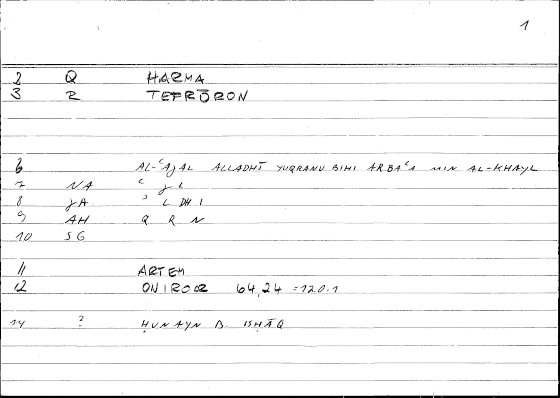 1
2 Q HARMA
3 R TEFRŌRON
6 AL-ʿAJAL ALLADHĪ YUQRANU BIHI ARBAʿA MIN AL-KHAYL
7 NA ʿ J L
8 JA ʾ L DH I
9 AH Q R N
10 SG
11 ARTEM
12 ONIROCR 64,24 =120.1
14 ? ḤUNAYN B. ISḤĀQ